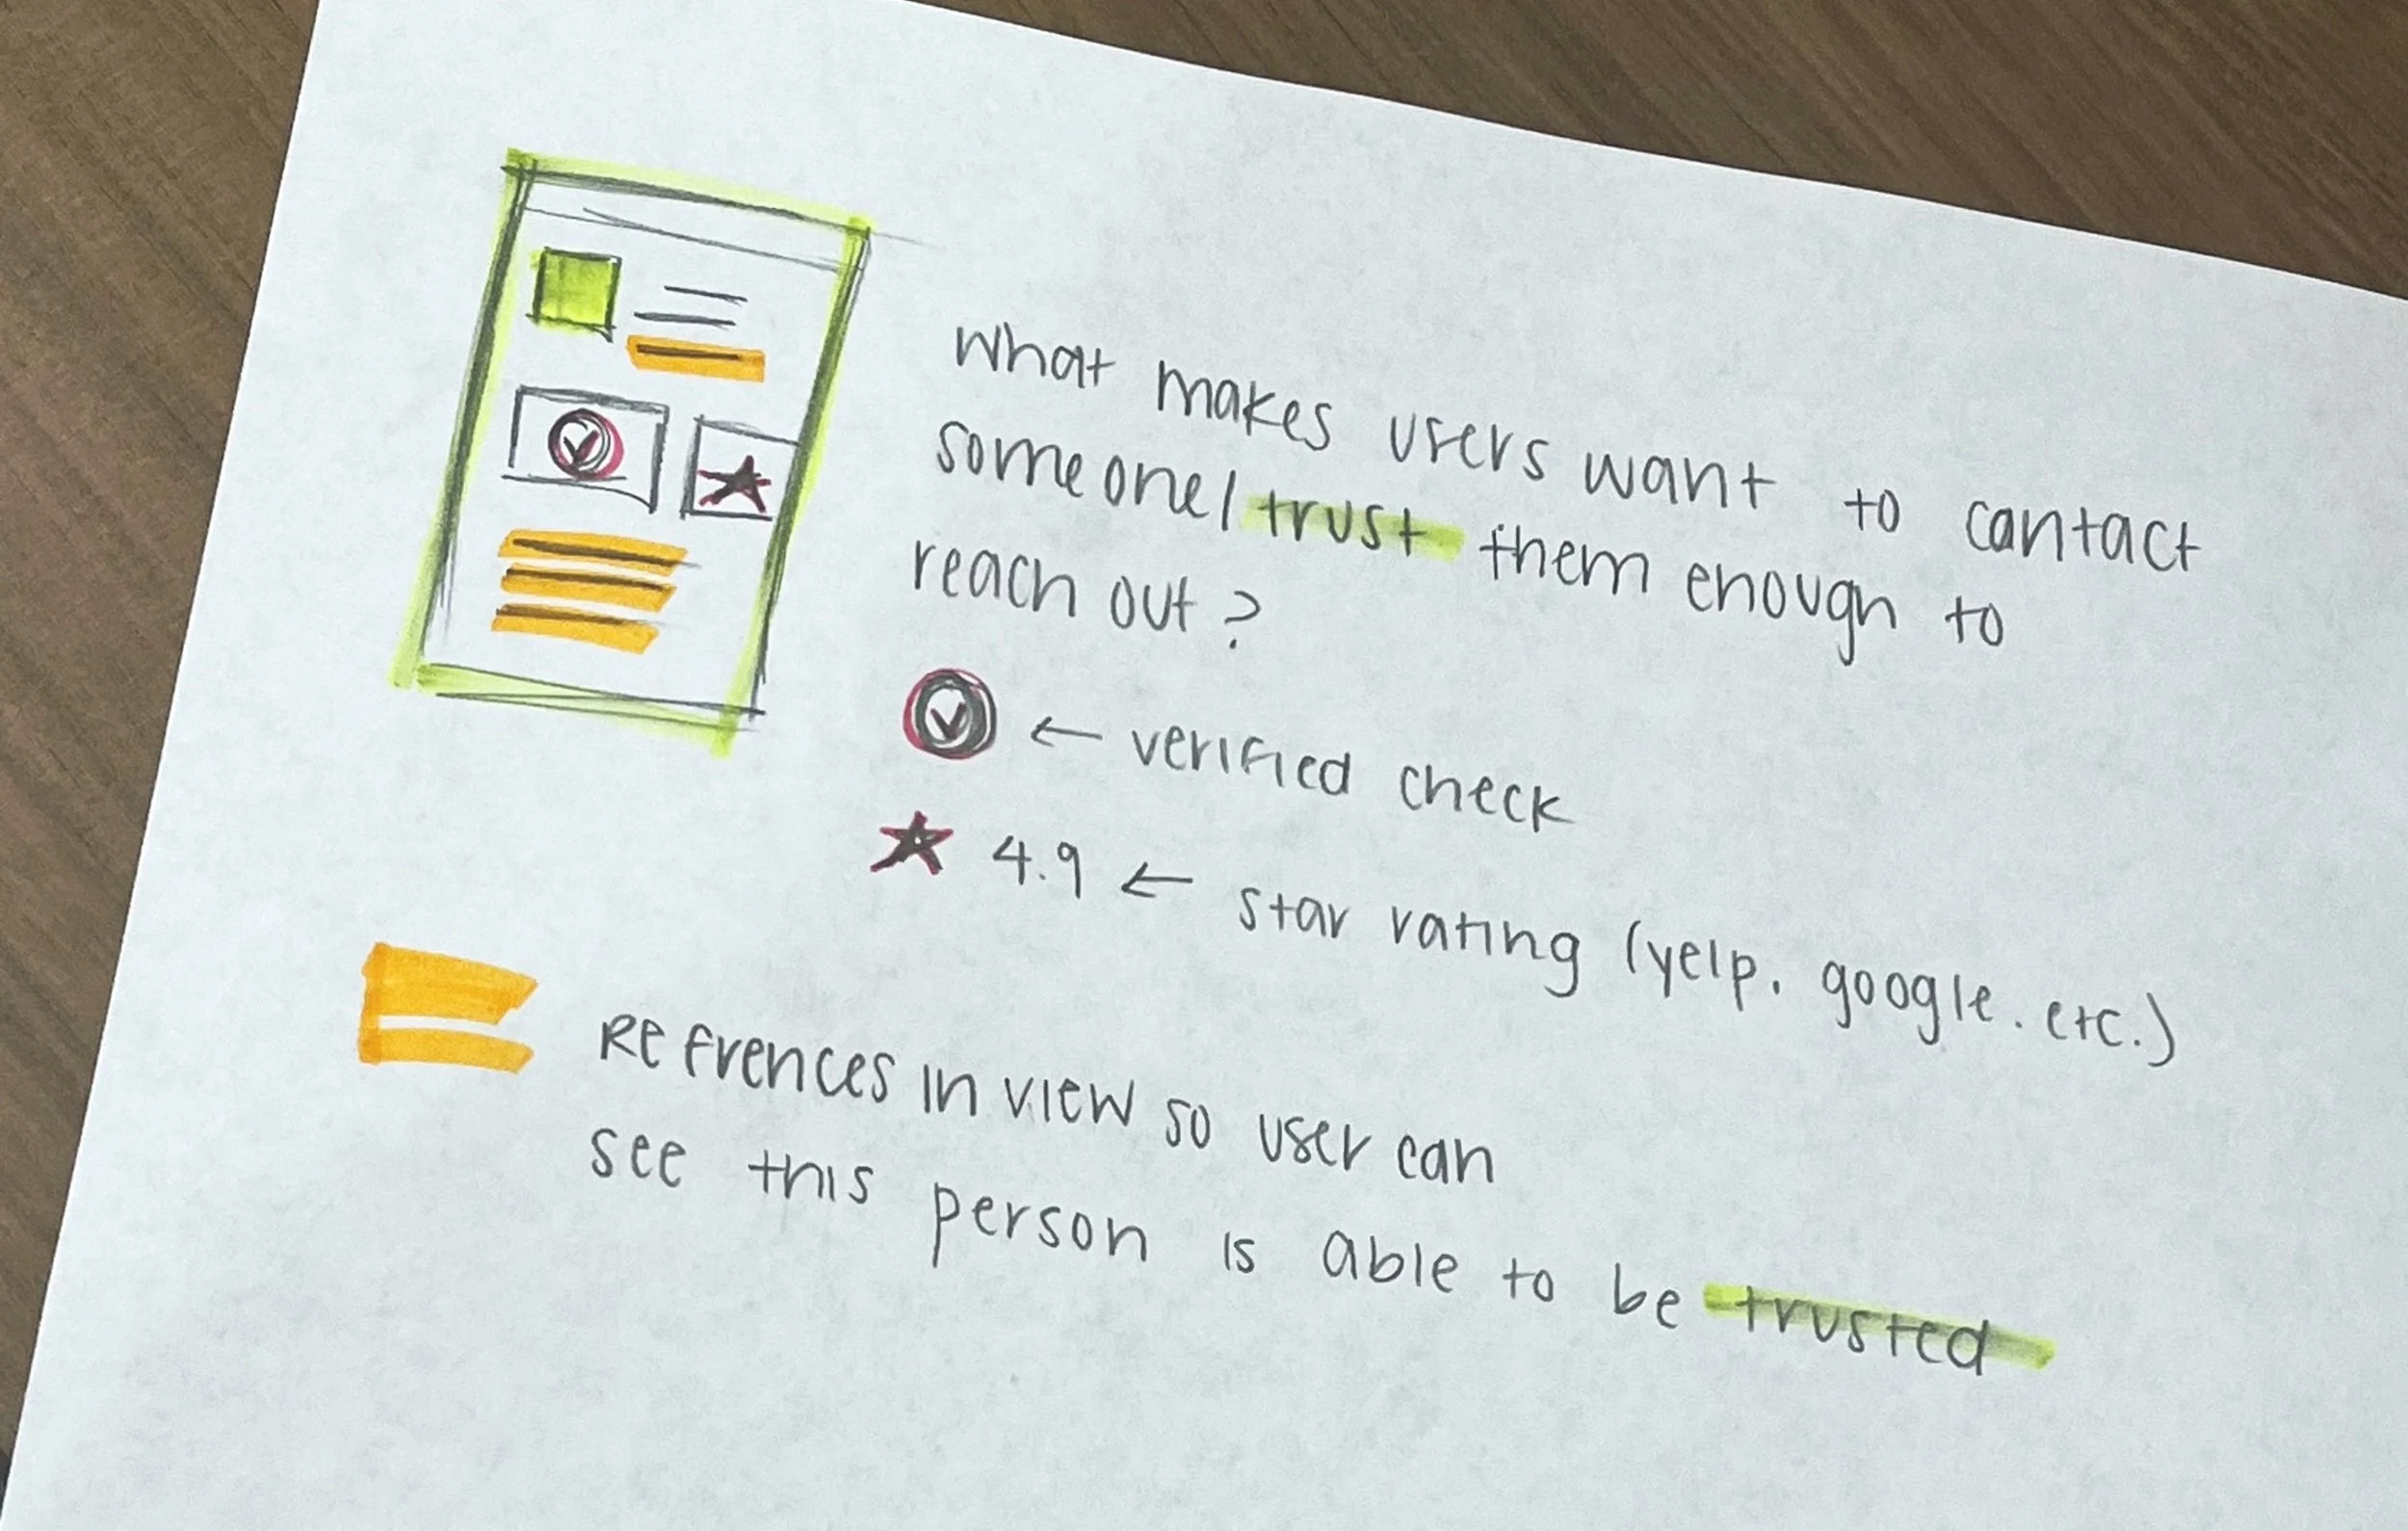 What makes users want to contact
someone/ trust them enough to
reach out?
← verified check
4.9 ← star rating (yelp. google. etc.)
Refrences in view so user can
see this person is able to be trusted